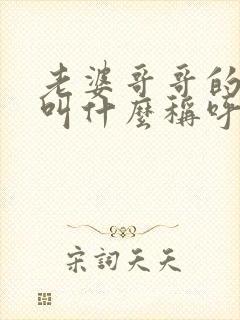 老婆哥哥的
叫什麼稱呼
宋詞天天